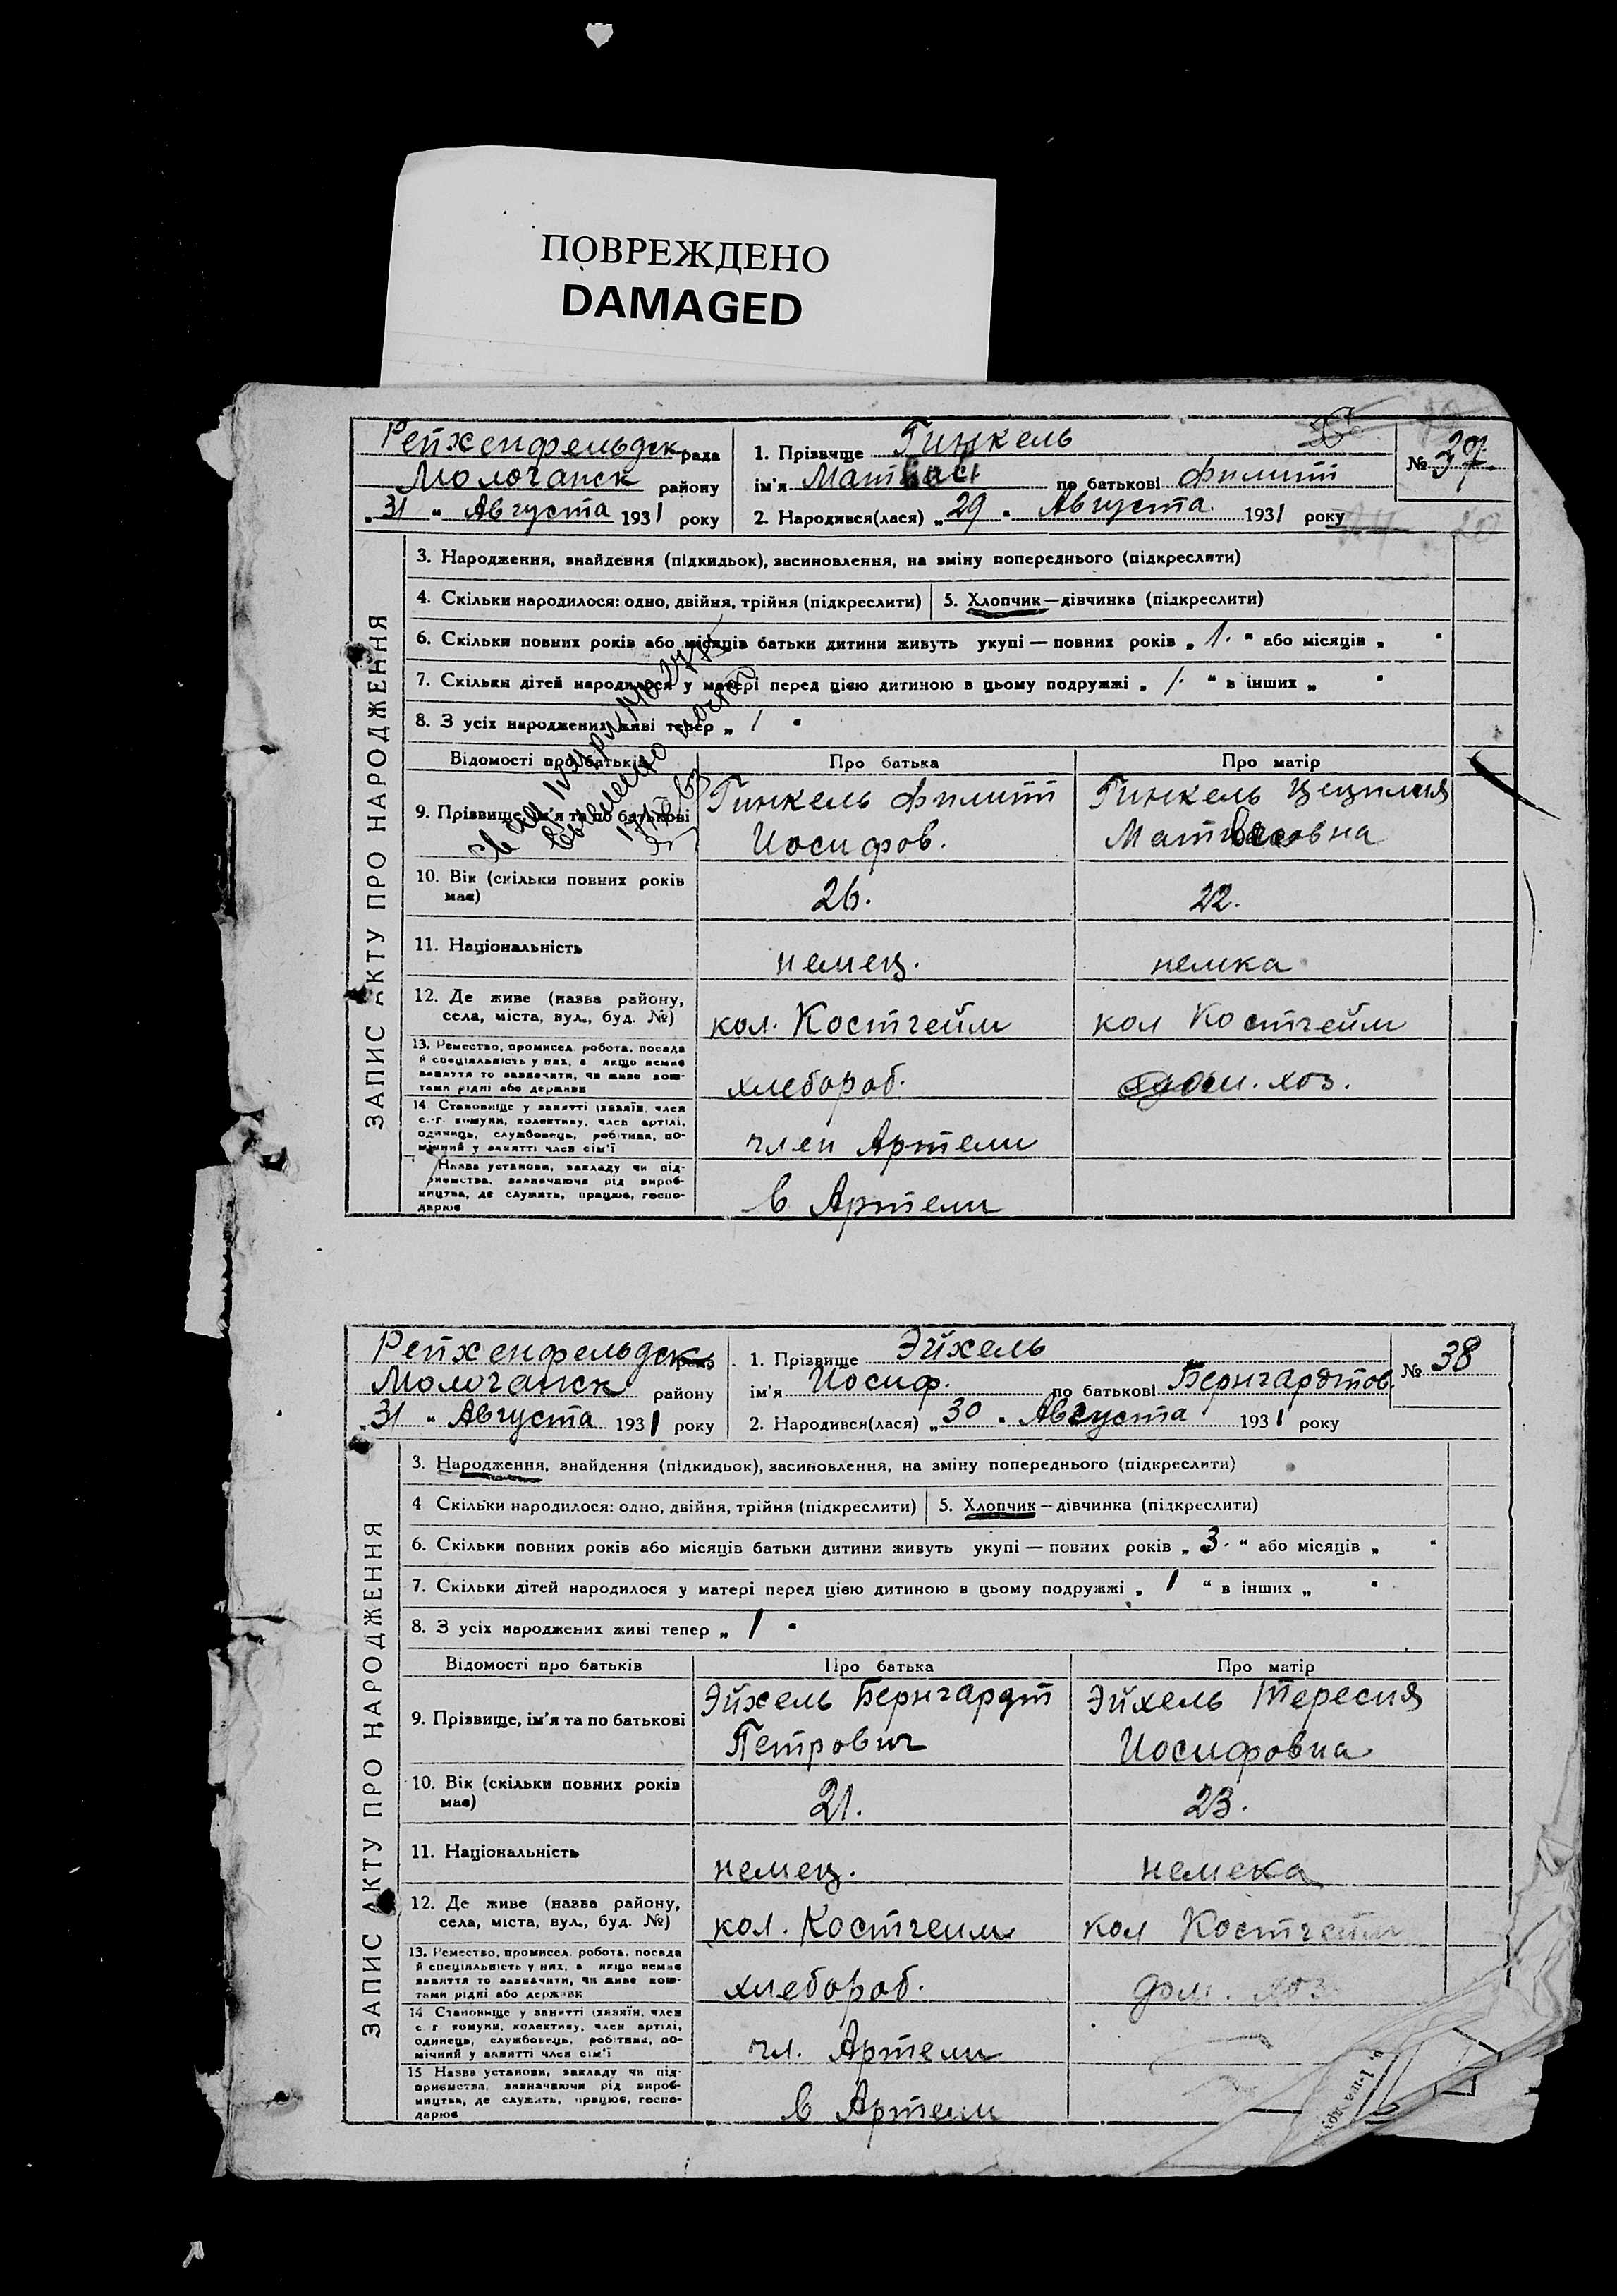 ПОВРЕЖДЕНО
DAMAGED
Рейхенфельдск рада
Молочанск району
„31“ Августа 1931 року
1. Прізвище Гинкель
ім'я по батькові Филипп
2. Народився(лася) „29“ Августа 1931 року
№ 37.
ЗАПИС АКТУ ПРО НАРОДЖЕННЯ
3. Народження, знайдення (підкидьок), засиновлення, на зміну попереднього (підкреслити)
4. Скільки народилося: одно, двійня, трійня (підкреслити) 5. Хлопчик—дівчинка (підкреслити)
6. Скільки повних років або місяців батьки дитини живуть укупі — повних років „ 1. “ або місяців „ “
7. Скільки дітей народилося у матері перед цією дитиною в цьому подружжі „ 1. “ в інших „ “
8. З усіх народжених живі тепер „ 1 “
Відомості про батьків Про батька Про матір
9. Прізвище, ім'я та по батькові
Гинкель Филипп Гинкель Цецилия
Иосифов. Матвеевна
10. Вік (скільки повних років має) 26. 22.
11. Національність немец. немка
12. Де живе (назва району, села, міста, вул., буд. №) кол. Костгейм кол Костгейм
13. Ремество, промисел, робота, посада
й спеціальність у них, а якщо немає
заняття то зазначити, чи живе кош-
тами рідні або держави
хлебороб. дом. хоз.
14. Становище у занятті (хазяїн, член
с.-г. комуни, колективу, член артілі,
одинець, службовець, робітник, по-
мічний у занятті член сім'ї
член Артели
Назва установи, закладу чи під-
приємства, зазначаючи рід вироб-
ництва, де служить, працює, госпо-
дарює
в Артели
Рейхенфельдск рада
Молочанск району
„31“ Августа 1931 року
1. Прізвище Эйхель
ім'я Иосиф. по батькові Бернгардтов.
2. Народився(лася) „30“ Августа 1931 року
№ 38
ЗАПИС АКТУ ПРО НАРОДЖЕННЯ
3. Народження, знайдення (підкидьок), засиновлення, на зміну попереднього (підкреслити)
4 Скільки народилося: одно, двійня, трійня (підкреслити) 5. Хлопчик — дівчинка (підкреслити)
6. Скільки повних років або місяців батьки дитини живуть укупі — повних років „ 3. “ або місяців „ “
7. Скільки дітей народилося у матері перед цією дитиною в цьому подружжі „ 1 “ в інших „ “
8. З усіх народжених живі тепер „ 1 “
Відомості про батьків Про батька Про матір
9. Прізвище, ім'я та по батькові
Эйхель Бернгардт Эйхель Тересия
Петрович Иосифовна
10. Вік (скільки повних років має) 21. 23.
11. Національність немец. немека
12. Де живе (назва району, села, міста, вул., буд. №) кол. Костгеим кол Костгейм
13. Ремество, промисел, робота, посада
й спеціальність у них, а якщо немає
заняття то зазначити, чи живе кош-
тами рідні або держави
хлебороб. дом. хоз
14 Становище у занятті (хазяїн, член
с.-г. комуни, колективу, член артілі,
одинець, службовець, робітник, по-
мічний у занятті член сім'ї
чл. Артели
15 Назва установи, закладу чи під-
приємства, зазначаючи рід вироб-
ництва, де служить, працює, госпо-
дарює
в Артели